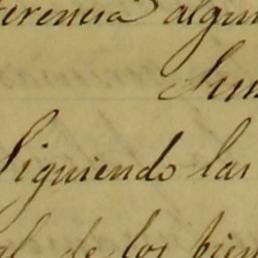 ferencia algun
Siguiendo las
al de los bien